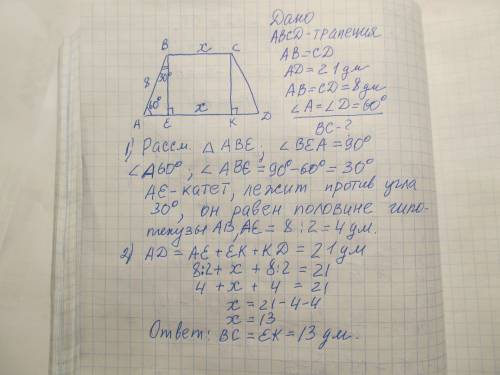 Дано
ABCD-трапеция
AB=CD
AD=21дм
AB=CD=8дм
∠A=∠D=60°
BC-?
B x C
8 30°
60° x
A E K D
1) Рассм. △ABE; ∠BEA=90°
∠A60°; ∠ABE=90°-60°=30°
AE-катет, лежит против угла
30°, он равен половине гипо-
тенузы AB, AE = 8:2=4 дм.
2) AD=AE+EK+KD=21дм
8:2+x+8:2=21
4+x+4=21
x=21-4-4
x=13
Ответ: BC=EK=13 дм.